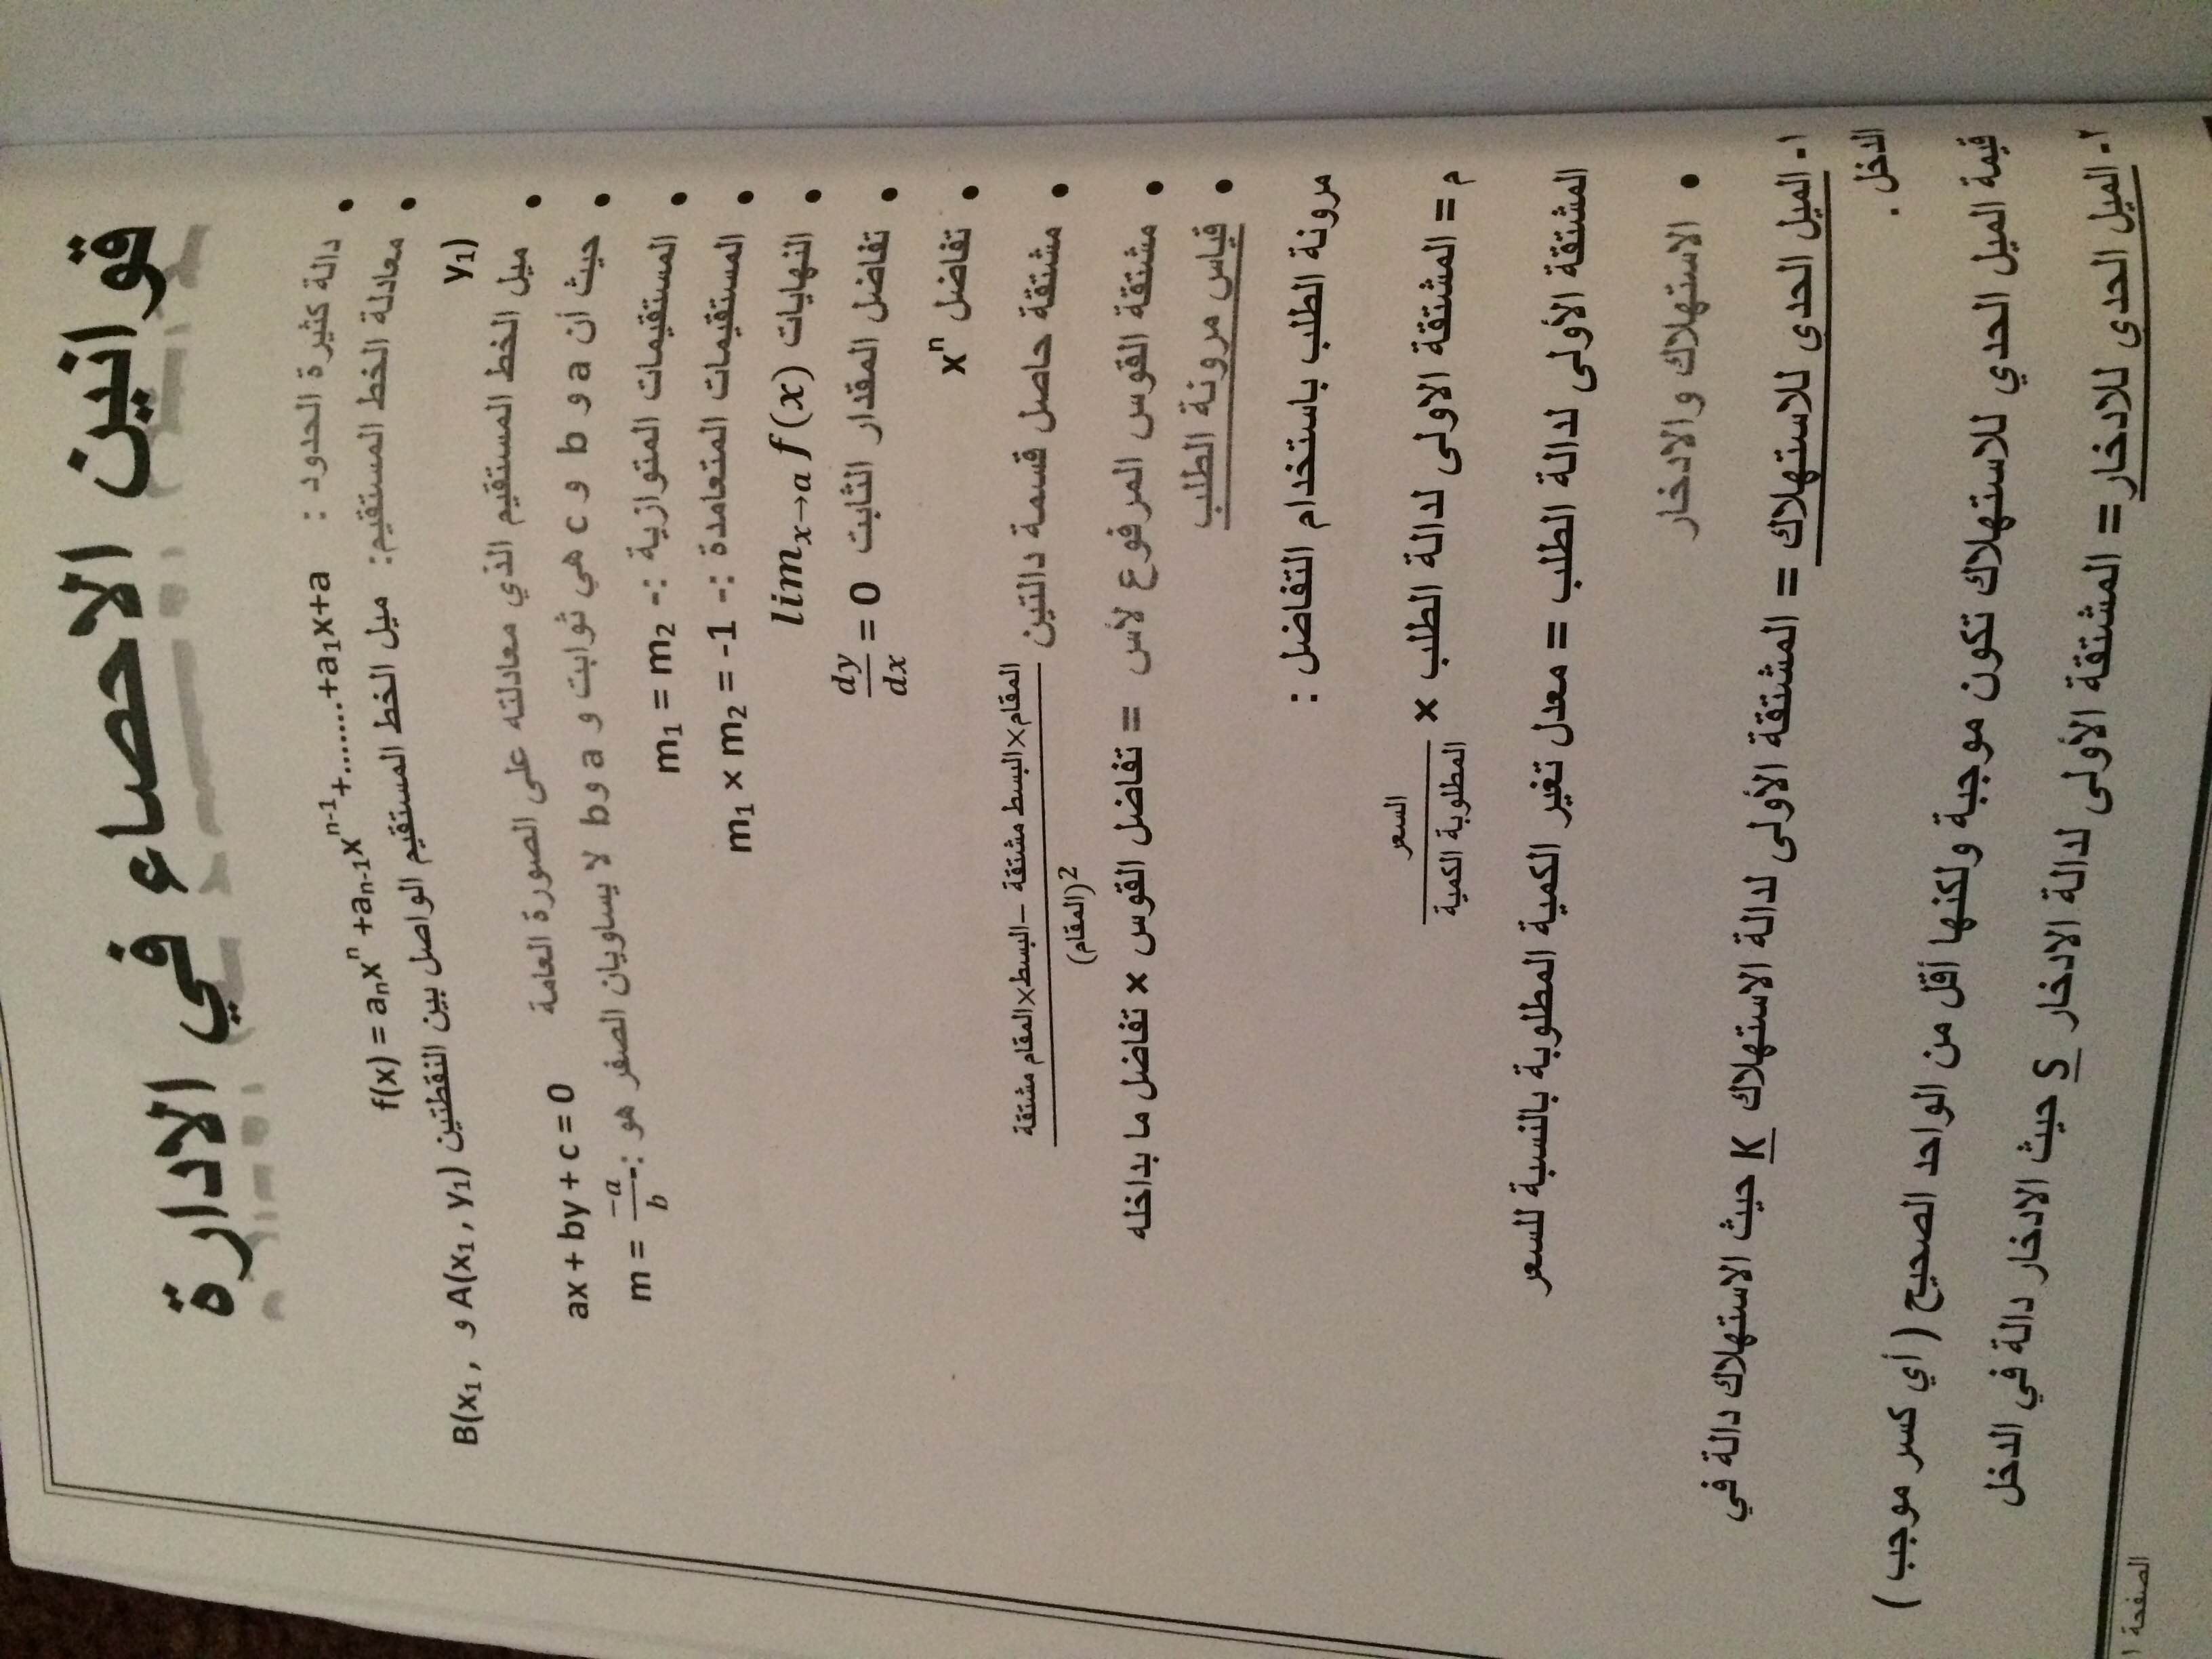 قوانين الاحصاء في الادارة
• دالة كثيرة الحدود :
f(x) = aₙxⁿ +aₙ₋₁xⁿ⁻¹+........+a₁x+a
• معادلة الخط المستقيم: ميل الخط المستقيم الواصل بين النقطتين A(x₁ , y₁) و B(x₁ ,
y₁)
• ميل الخط المستقيم الذي معادلته على الصورة العامة ax + by + c = 0
• حيث أن a و b و c هي ثوابت و a وb لا يساويان الصفر هو :- m = \frac{-a}{b}
• المستقيمات المتوازية :- m₁ = m₂
• المستقيمات المتعامدة :- m₁ x m₂ = -1
• النهايات lim x→a f(x)
• تفاضل المقدار الثابت \frac{dy}{dx} = 0
• تفاضل xⁿ
• مشتقة حاصل قسمة دالتين \frac{المقام×البسط مشتقة –البسط×المقام مشتقة}{(المقام)²}
• مشتقة القوس المرفوع لأس = تفاضل القوس x تفاضل ما بداخله
• قياس مرونة الطلب
مرونة الطلب باستخدام التفاضل :
م = المشتقة الاولى لدالة الطلب x \frac{السعر}{المطلوبة الكمية}
المشتقة الأولى لدالة الطلب = معدل تغير الكمية المطلوبة بالنسبة للسعر
• الاستهلاك والادخار
١- الميل الحدي للاستهلاك = المشتقة الأولى لدالة الاستهلاك K حيث الاستهلاك دالة في
الدخل .
قيمة الميل الحدي للاستهلاك تكون موجبة ولكنها أقل من الواحد الصحيح ( أي كسر موجب )
٢- الميل الحدي للادخار = المشتقة الأولى لدالة الادخار S حيث الادخار دالة في الدخل
الصفحة ١